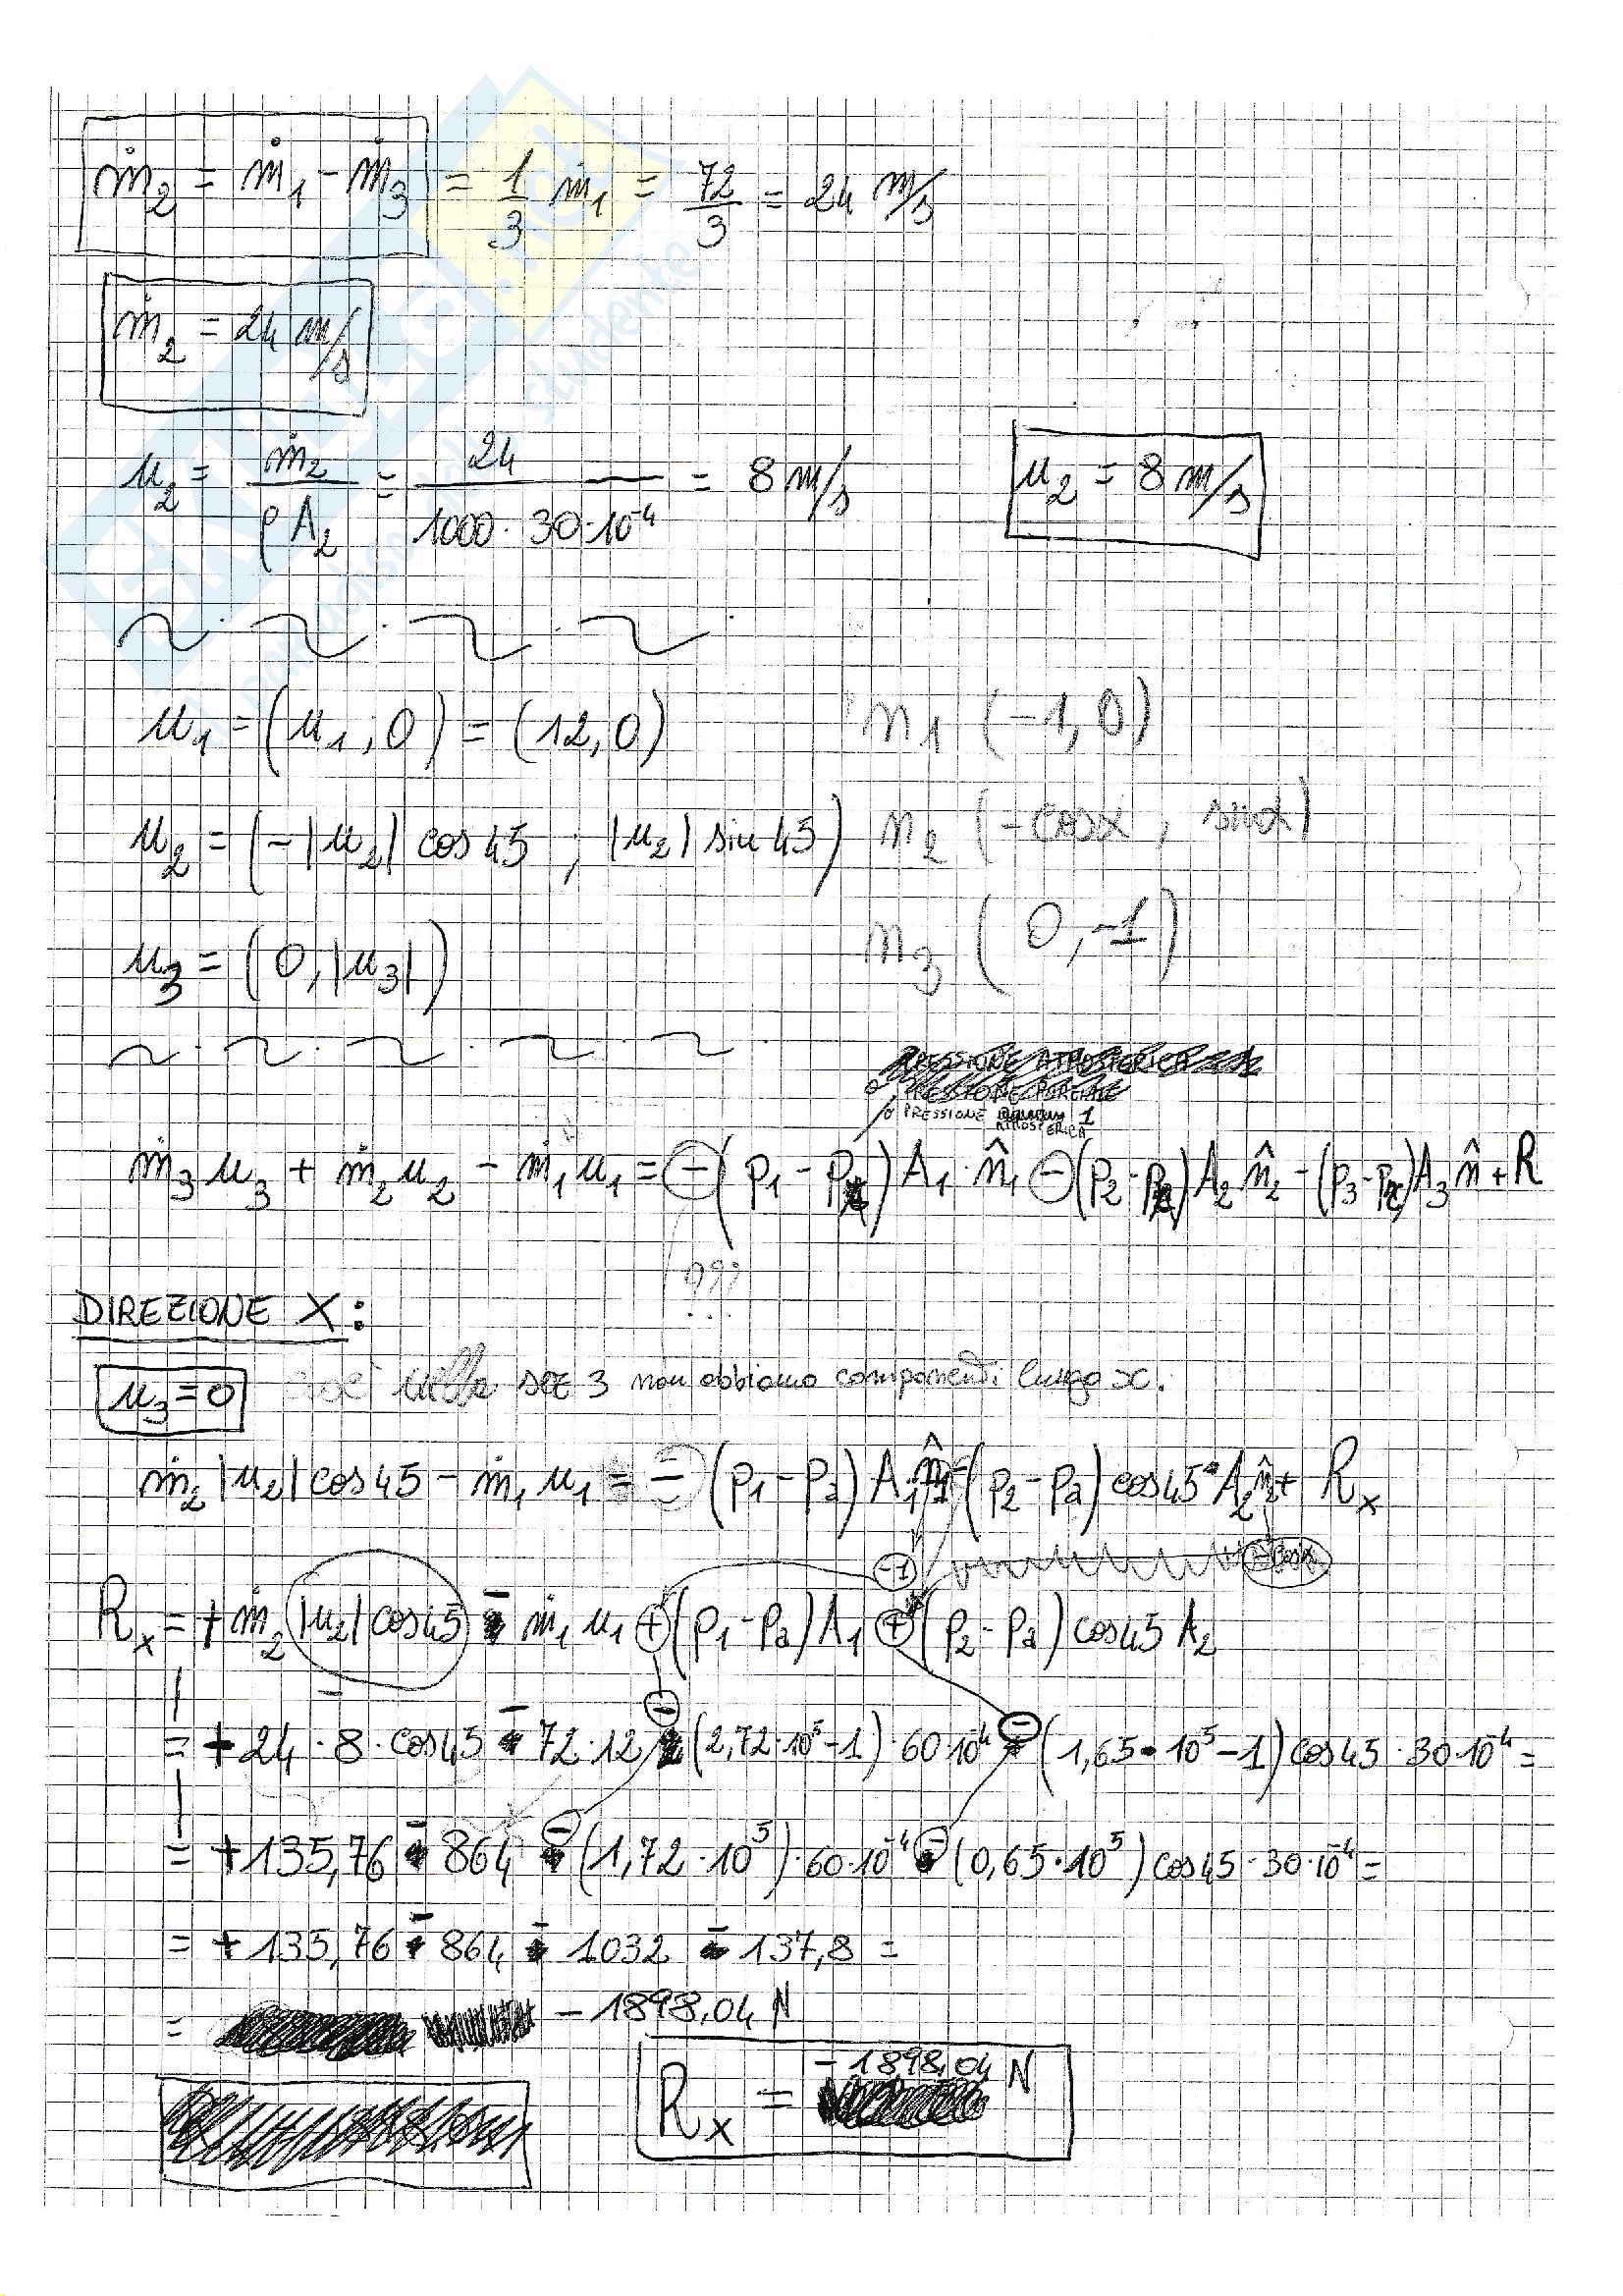 ṁ₂ = ṁ₁ - ṁ₃ = 1/3 ṁ₁ = 72/3 = 24 m/s
ṁ₂ = 24 m/s
u₂ = ṁ₂/(ρ A₂) = 24/(1000 · 30·10⁻⁴) = 8 m/s
u₂ = 8 m/s
u₁ = (u₁ ; 0) = (12, 0) n₁ (-1, 0)
u₂ = (-|u₂| cos 45 ; |u₂| sin 45) n₂ (-cosα , sinα)
u₃ = (0, |u₃|) n₃ (0, -1)
PRESSIONE ATMOSFERICA
PRESSIONE 1
ATMOSFERICA
ṁ₃ u₃ + ṁ₂ u₂ - ṁ₁ u₁ = -(p₁ - pₐ) A₁ · n̂₁ - (p₂ - pₐ) A₂ n̂₂ - (p₃ - pₐ) A₃ n̂ + R
???
...
DIREZIONE X:
u₃ = 0 cioè nella sez 3 non abbiamo componenti lungo x.
ṁ₂ |u₂| cos 45 - ṁ₁ u₁ = - (p₁ - pₐ) A₁ n̂₁ - (p₂ - pₐ) cos 45° A₂ n̂₂ + Rₓ
-1 -cosα
Rₓ = + ṁ₂ |u₂| cos 45 - ṁ₁ u₁ + (p₁ - pₐ) A₁ + (p₂ - pₐ) cos 45 A₂
= + 24 · 8 · cos 45 - 72 · 12 - (2,72 · 10⁵ - 1) · 60·10⁻⁴ - (1,65 · 10⁵ - 1) cos 45 · 30·10⁻⁴ =
= + 135,76 - 864 - (1,72 · 10⁵) · 60·10⁻⁴ - (0,65 · 10⁵) cos 45 · 30·10⁻⁴ =
= + 135,76 - 864 - 1032 - 137,8 =
= - 1898,04 N
Rₓ = - 1898,04 N